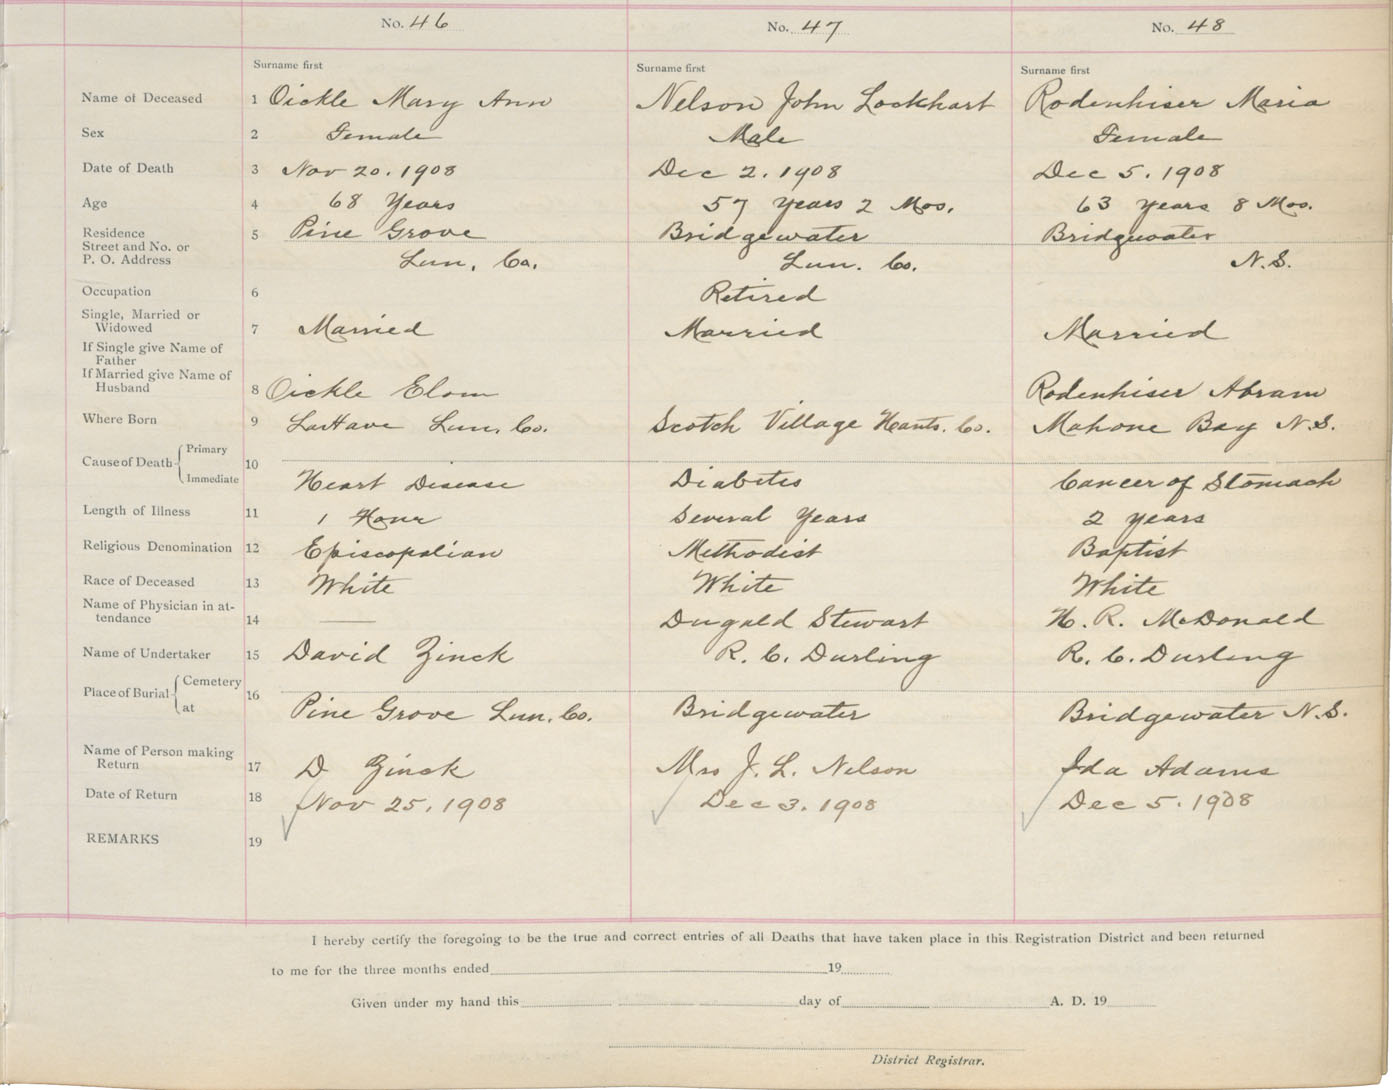 No. 46 No. 47 No. 48
Surname first Surname first Surname first
Name of Deceased 1 Oickle Mary Ann Nelson John Lockhart Rodenhiser Maria
Sex 2 Female Male Female
Date of Death 3 Nov 20. 1908 Dec 2. 1908 Dec 5. 1908
Age 4 68 Years 57 Years 2 Mos. 63 Years 8 Mos.
Residence 5 Pine Grove Bridgewater Bridgewater
Street and No. or
P. O. Address Lun. Co. Lun. Co. N.S.
Occupation 6 Retired
Single, Married or
Widowed 7 Married Married Married
If Single give Name of
Father
If Married give Name of
Husband 8 Oickle Elom Rodenhiser Abram
Where Born 9 LaHave Lun. Co. Scotch Village Hants. Co. Mahone Bay N.S.
Primary
Cause of Death 10
Immediate Heart Disease Diabetis Cancer of Stomach
Length of Illness 11 1 Hour Several Years 2 years
Religious Denomination 12 Episcopalian Methodist Baptist
Race of Deceased 13 White White White
Name of Physician in at-
tendance 14 — Dugald Stewart H. R. McDonald
Name of Undertaker 15 David Zinck R. C. Durling R. C. Durling
Cemetery
Place of Burial 16
at Pine Grove Lun. Co. Bridgewater Bridgewater N.S.
Name of Person making
Return 17 D Zinck Mrs J. L. Nelson Ida Adams
Date of Return 18 Nov 25. 1908 Dec 3. 1908 Dec 5. 1908
REMARKS 19
I hereby certify the foregoing to be the true and correct entries of all Deaths that have taken place in this Registration District and been returned
to me for the three months ended 19
Given under my hand this day of A. D. 19
District Registrar.